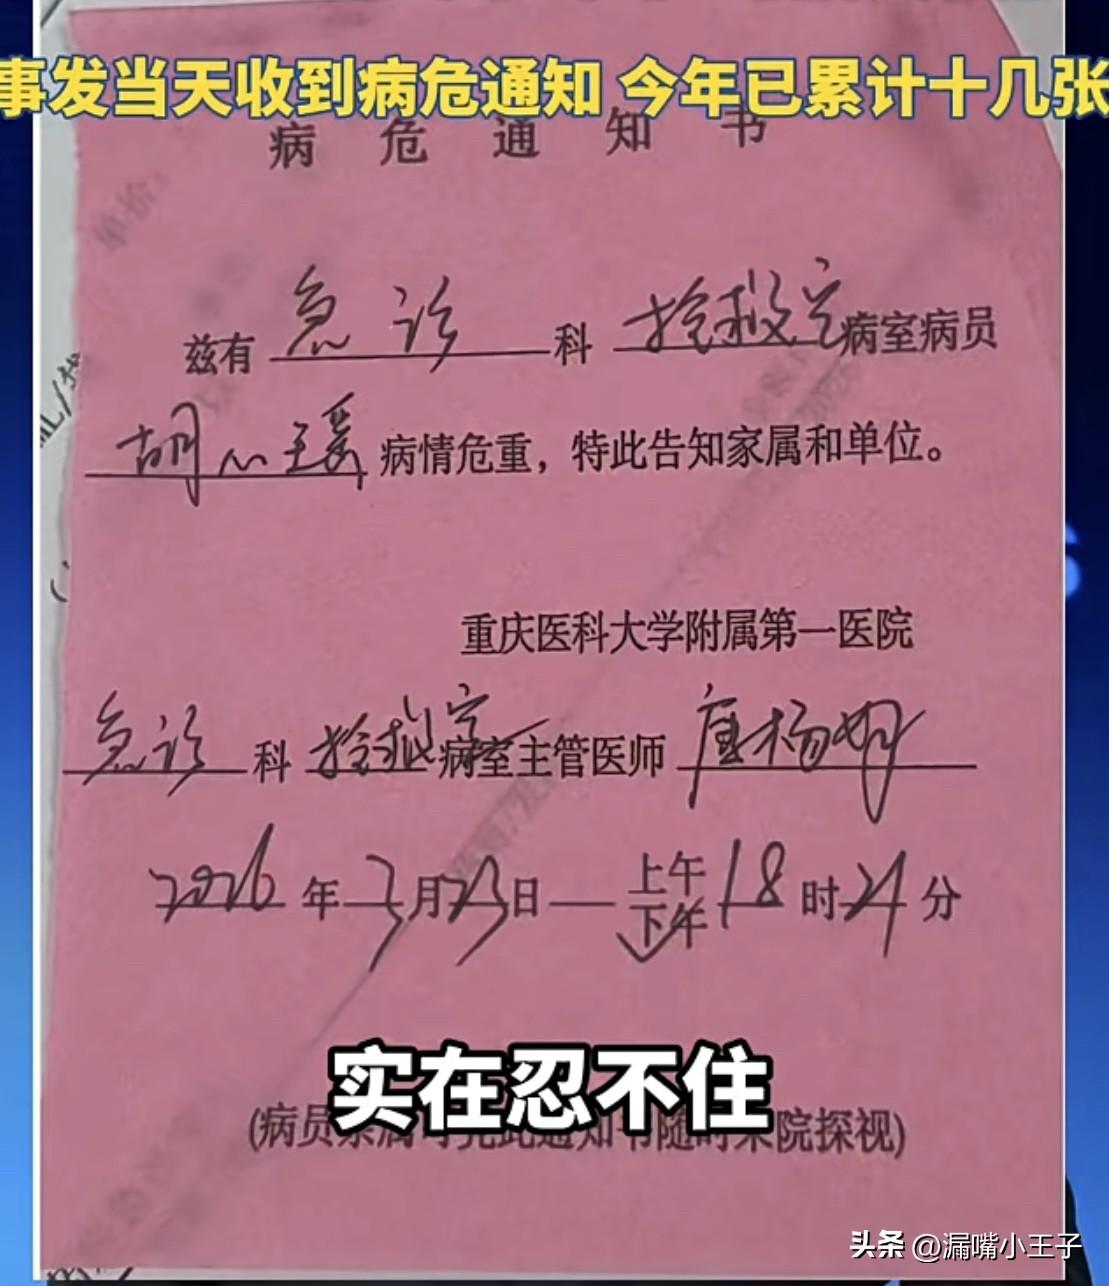 事发当天收到病危通知 今年已累计十几张
病危通知书
兹有 急诊 科 抢救室 病室病员
胡心瑶 病情危重，特此告知家属和单位。
重庆医科大学附属第一医院
急诊 科 抢救室 病室主管医师
2026年3月23日 上午
下午 18时21分
实在忍不住
(病员家属可凭此通知书随时来院探视)
头条 @漏嘴小王子